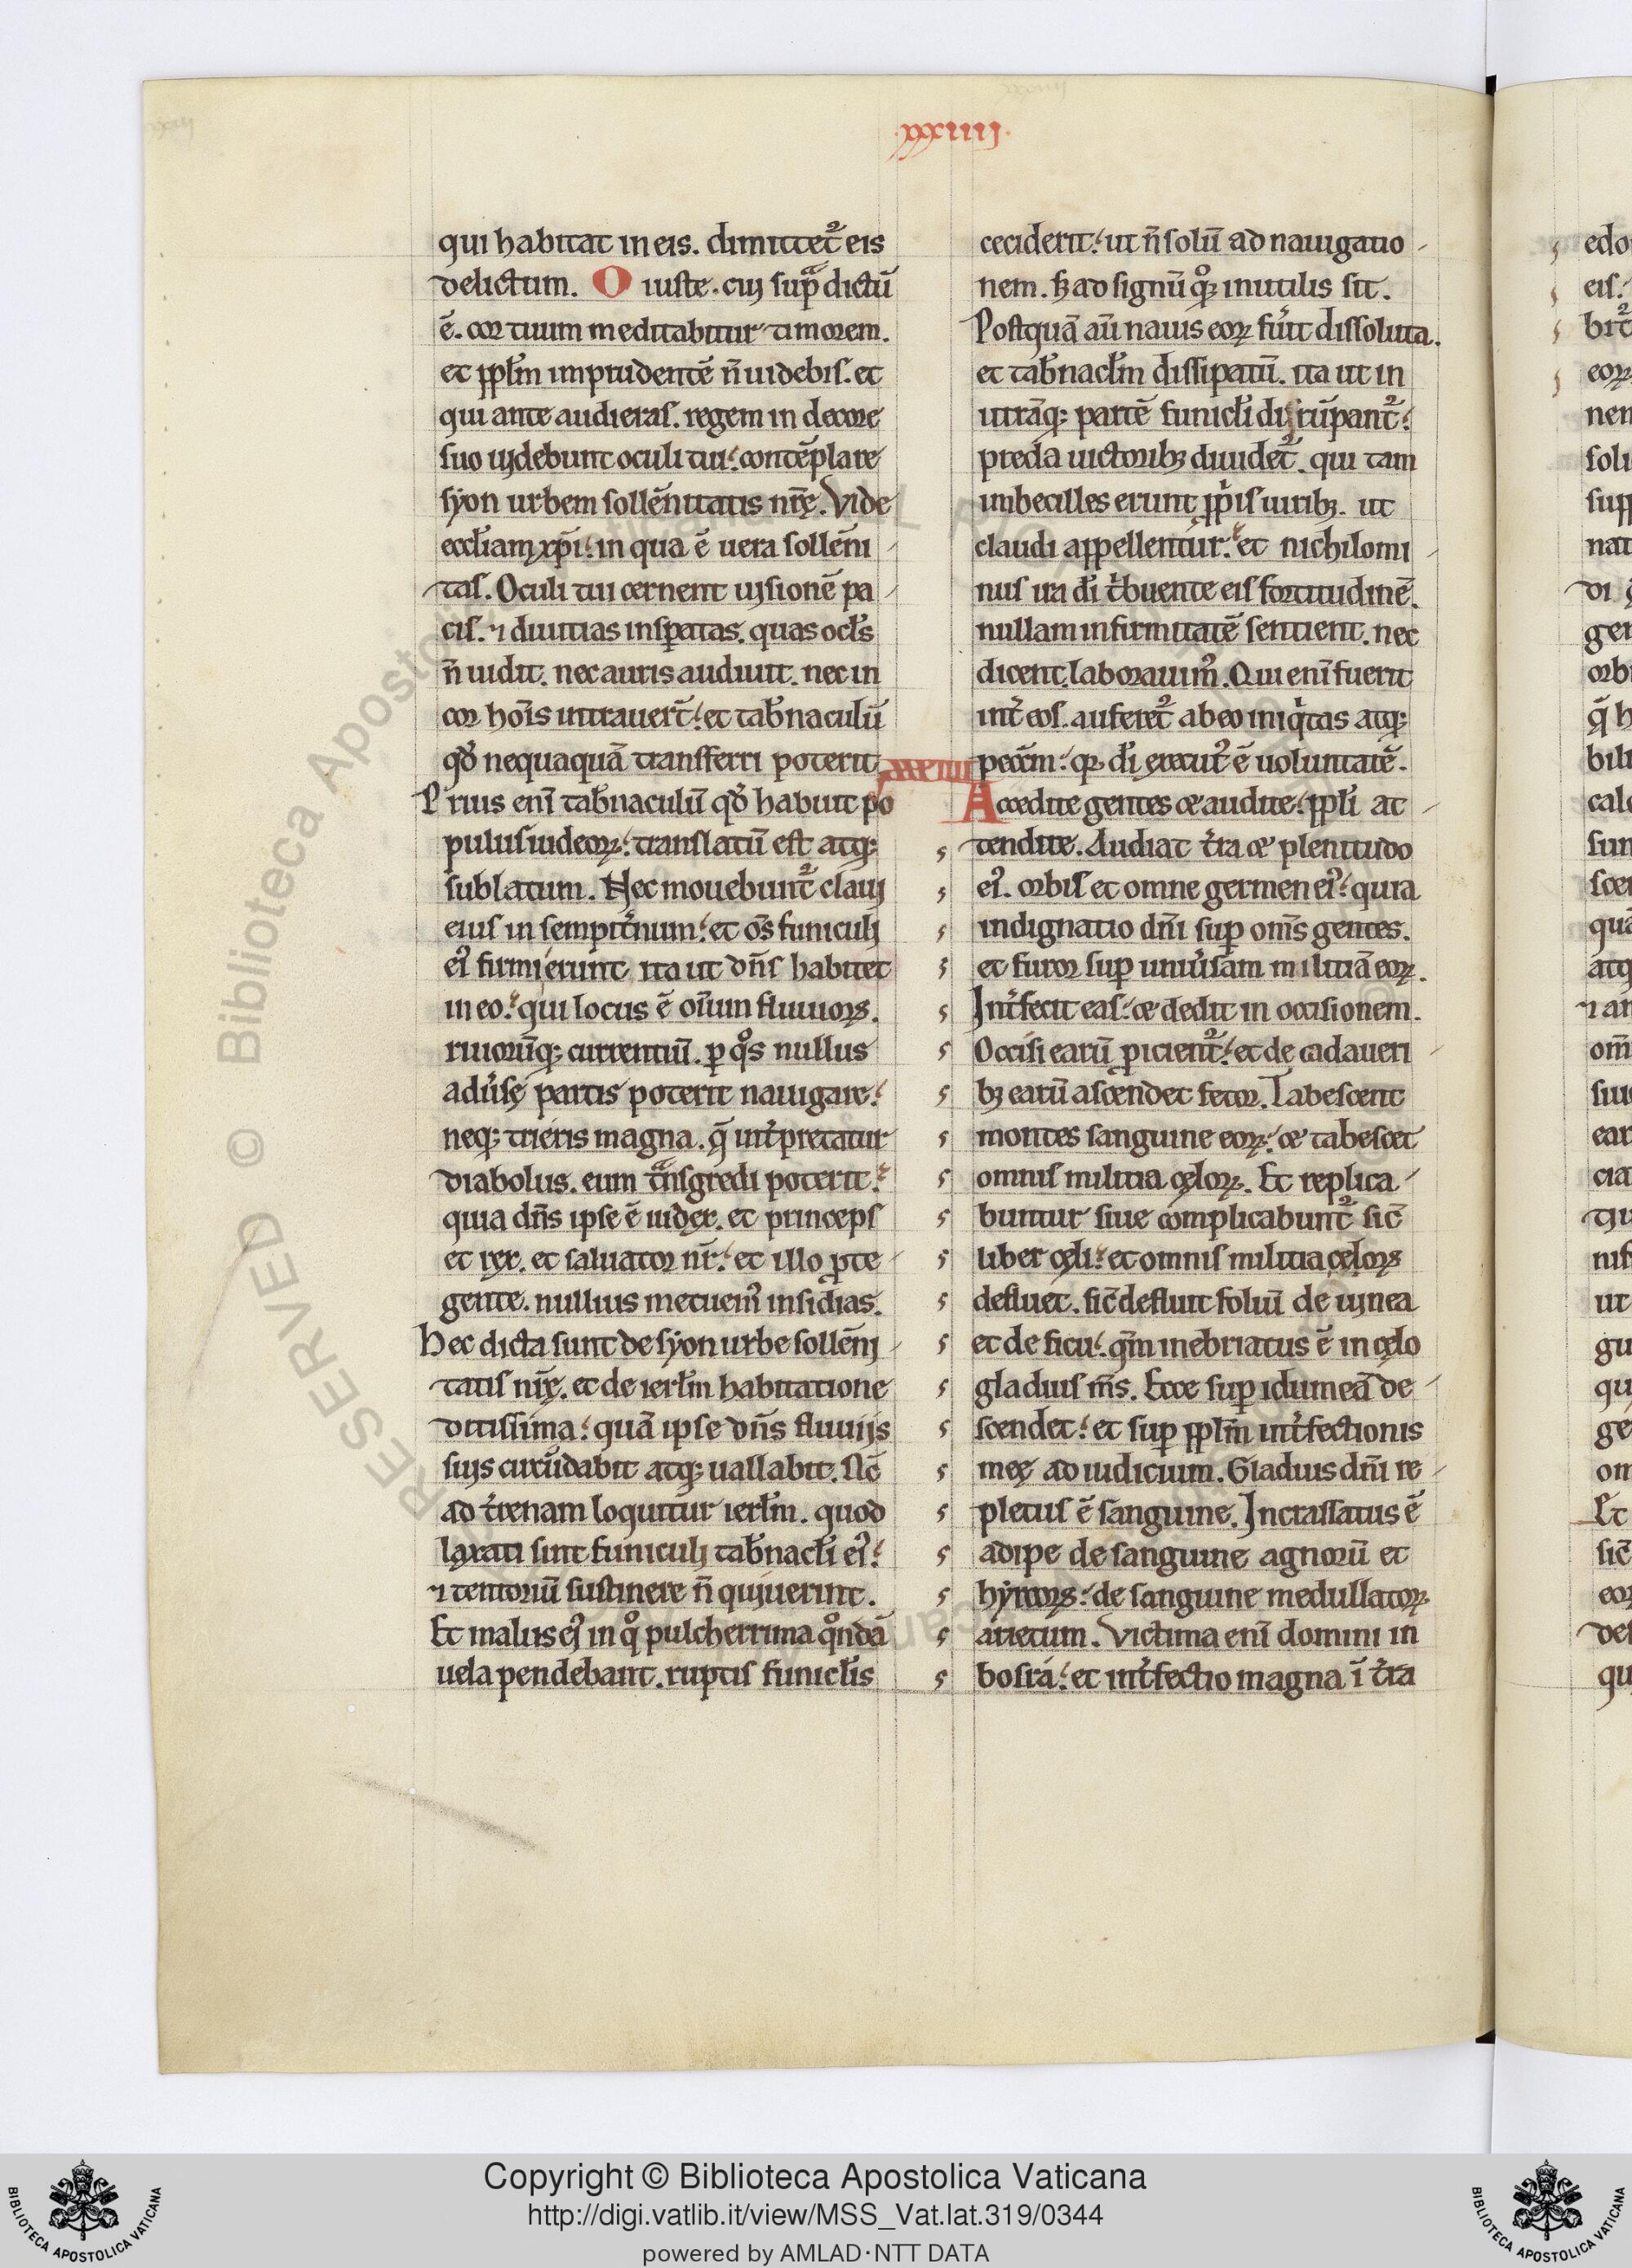 ·xxxiiij·
qui habitat in eis. dimittet᷑ eis
delictum. O iuste. cuj sup̄ dictū
ē. cor tuum meditabitur timorem.
et ppl̄m imprudentē n̄ uidebis. et
qui ante audieras. regem in decore
suo ujdebunt oculi tui: contēplare
syon urbem sollēnitatis nr̄ę. Vide
eccl̄iam xp̄i: in qua ē uera sollēni-
tas. Oculi tui cernent ujsionē pa-
cis. ⁊ diuitias insꝑatas. quas ocl̄s
n̄ uidit. nec auris audiuit. nec in
cor hoīs intrauert̄: et tab̄naculū
qd̄ nequaquā transferri poterit.
xxxiiii
Prius enī tab̄naculū qd̄ habuit po
pulus iudeoꝝ: translatū est atq;
sublatum. Nec mouebunt᷑ clauj
eius in sempit̄num: et os̄ funiculj
eiꝰ firmi erunt ita ut dn̄s habitet
in eo: qui locus ē oīum fluuioꝝ.
riuorūq; currentiū. ꝑ qͦs nullus
adu̓sę partis poterit nauigare:
neq; trieris magna. q̄ int̓pretatur
diabolus. eum tn̄sgredi poterit:
quia dn̄s ipse ē iudex. et princeps
et rex. et saluator nr̄: et illo ꝓte-
gente. nullius metuemꝰ insidias.
Hec dicta sunt de syon urbe sollēnj-
tatis nr̄ę. et de ierl̄m habitatione
ditissima: quā ipse dn̄s fluuijs
sujs circūdabit atq; uallabit. Nc̄
ad t̓renam loquitur ierl̄m. quod
laxati sint funiculj tab̄nacl̄i eiꝰ:
⁊ tentoriū sustinere n̄ qujuerint.
Et malus ejꝰ in qͦ pulcherrima qͦndā
uela pendebant. ruptis funicl̄is
ceciderit: ut n̄ solū ad nauigatio-
nem. sꝫ ad signū qͦꝫ inutilis sit.
Postquā aū nauis eoꝝ fu̓it dissoluta.
et tab̄nacl̄m dissipatū. ita ut in
utrāq; partē funicl̄i disrūpant᷑:
preda uictoribꝫ diuidet᷑. qui tam
imbecilles erunt ꝓpͥis uiribꝫ. ut
claudi appellentur: et nichilomi-
nus ira dī t̓buente eis fortitudinē.
nullam infirmitatē sentient. nec
dicent. laborauimꝰ. Qui enī fuerit
int̓ eos. auferet᷑ ab eo iniqͥtas atq;
peccm̄: qꝛ dī executꝰ ē uoluntatē.
Accedite gentes & audite: ppl̄i at-
tendite. Audiat t̓ra & plenitudo
eiꝰ. orbis et omne germen eiꝰ: quia
indignatio dn̄i suꝑ omīs gentes.
et furor suꝑ uniu̓sam militiā eoꝝ.
Int̓fecit eas: & dedit in occisionem.
Occisi earū ꝓicient᷑: et de cadaueri-
bꝫ earū ascendet fetor. Tabescent
montes sanguine eoꝝ: & tabescet
omnis militia cęloꝝ. Et replica-
buntur siue complicabunt᷑ sic̄
liber cęli: et omnis militia cęloꝝ
defluet. sic̄ defluit foliū de ujnea
et de ficu: qm̄ inebriatus ē in cęlo
gladius m̄s. Ecce suꝑ idumeā de-
scendet: et suꝑ ppl̄m int̓fectionis
meę ad iudicium. Gladius dn̄i re-
pletus ē sanguine. Incrassatus ē
adipe de sanguine agnorū et
hyrcoꝝ: de sanguine medullatoꝝ
arietum. Victima enī domini in
bosra: et int̓fectio magna ī t̓ra
Copyright © Biblioteca Apostolica Vaticana
http://digi.vatlib.it/view/MSS_Vat.lat.319/0344
powered by AMLAD·NTT DATA